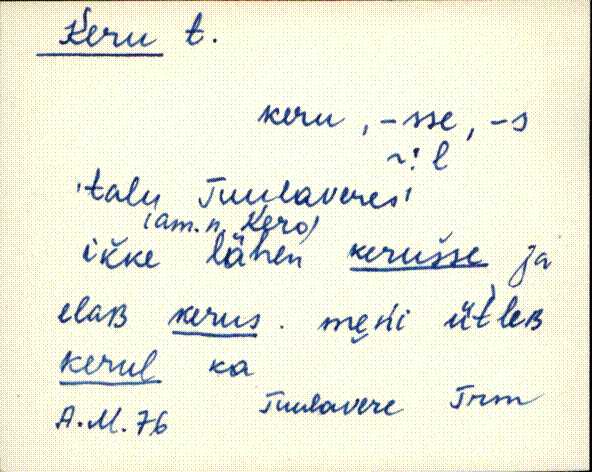 Keru t.
keru, -sse, -s
~! l
'talu Tuulaveres'
(am. n. Kero)
ikke lähen kerusse ja
elaʙ kerus. mẹni ütleʙ
kerul ka
Tuulavere Trm
A.M.76